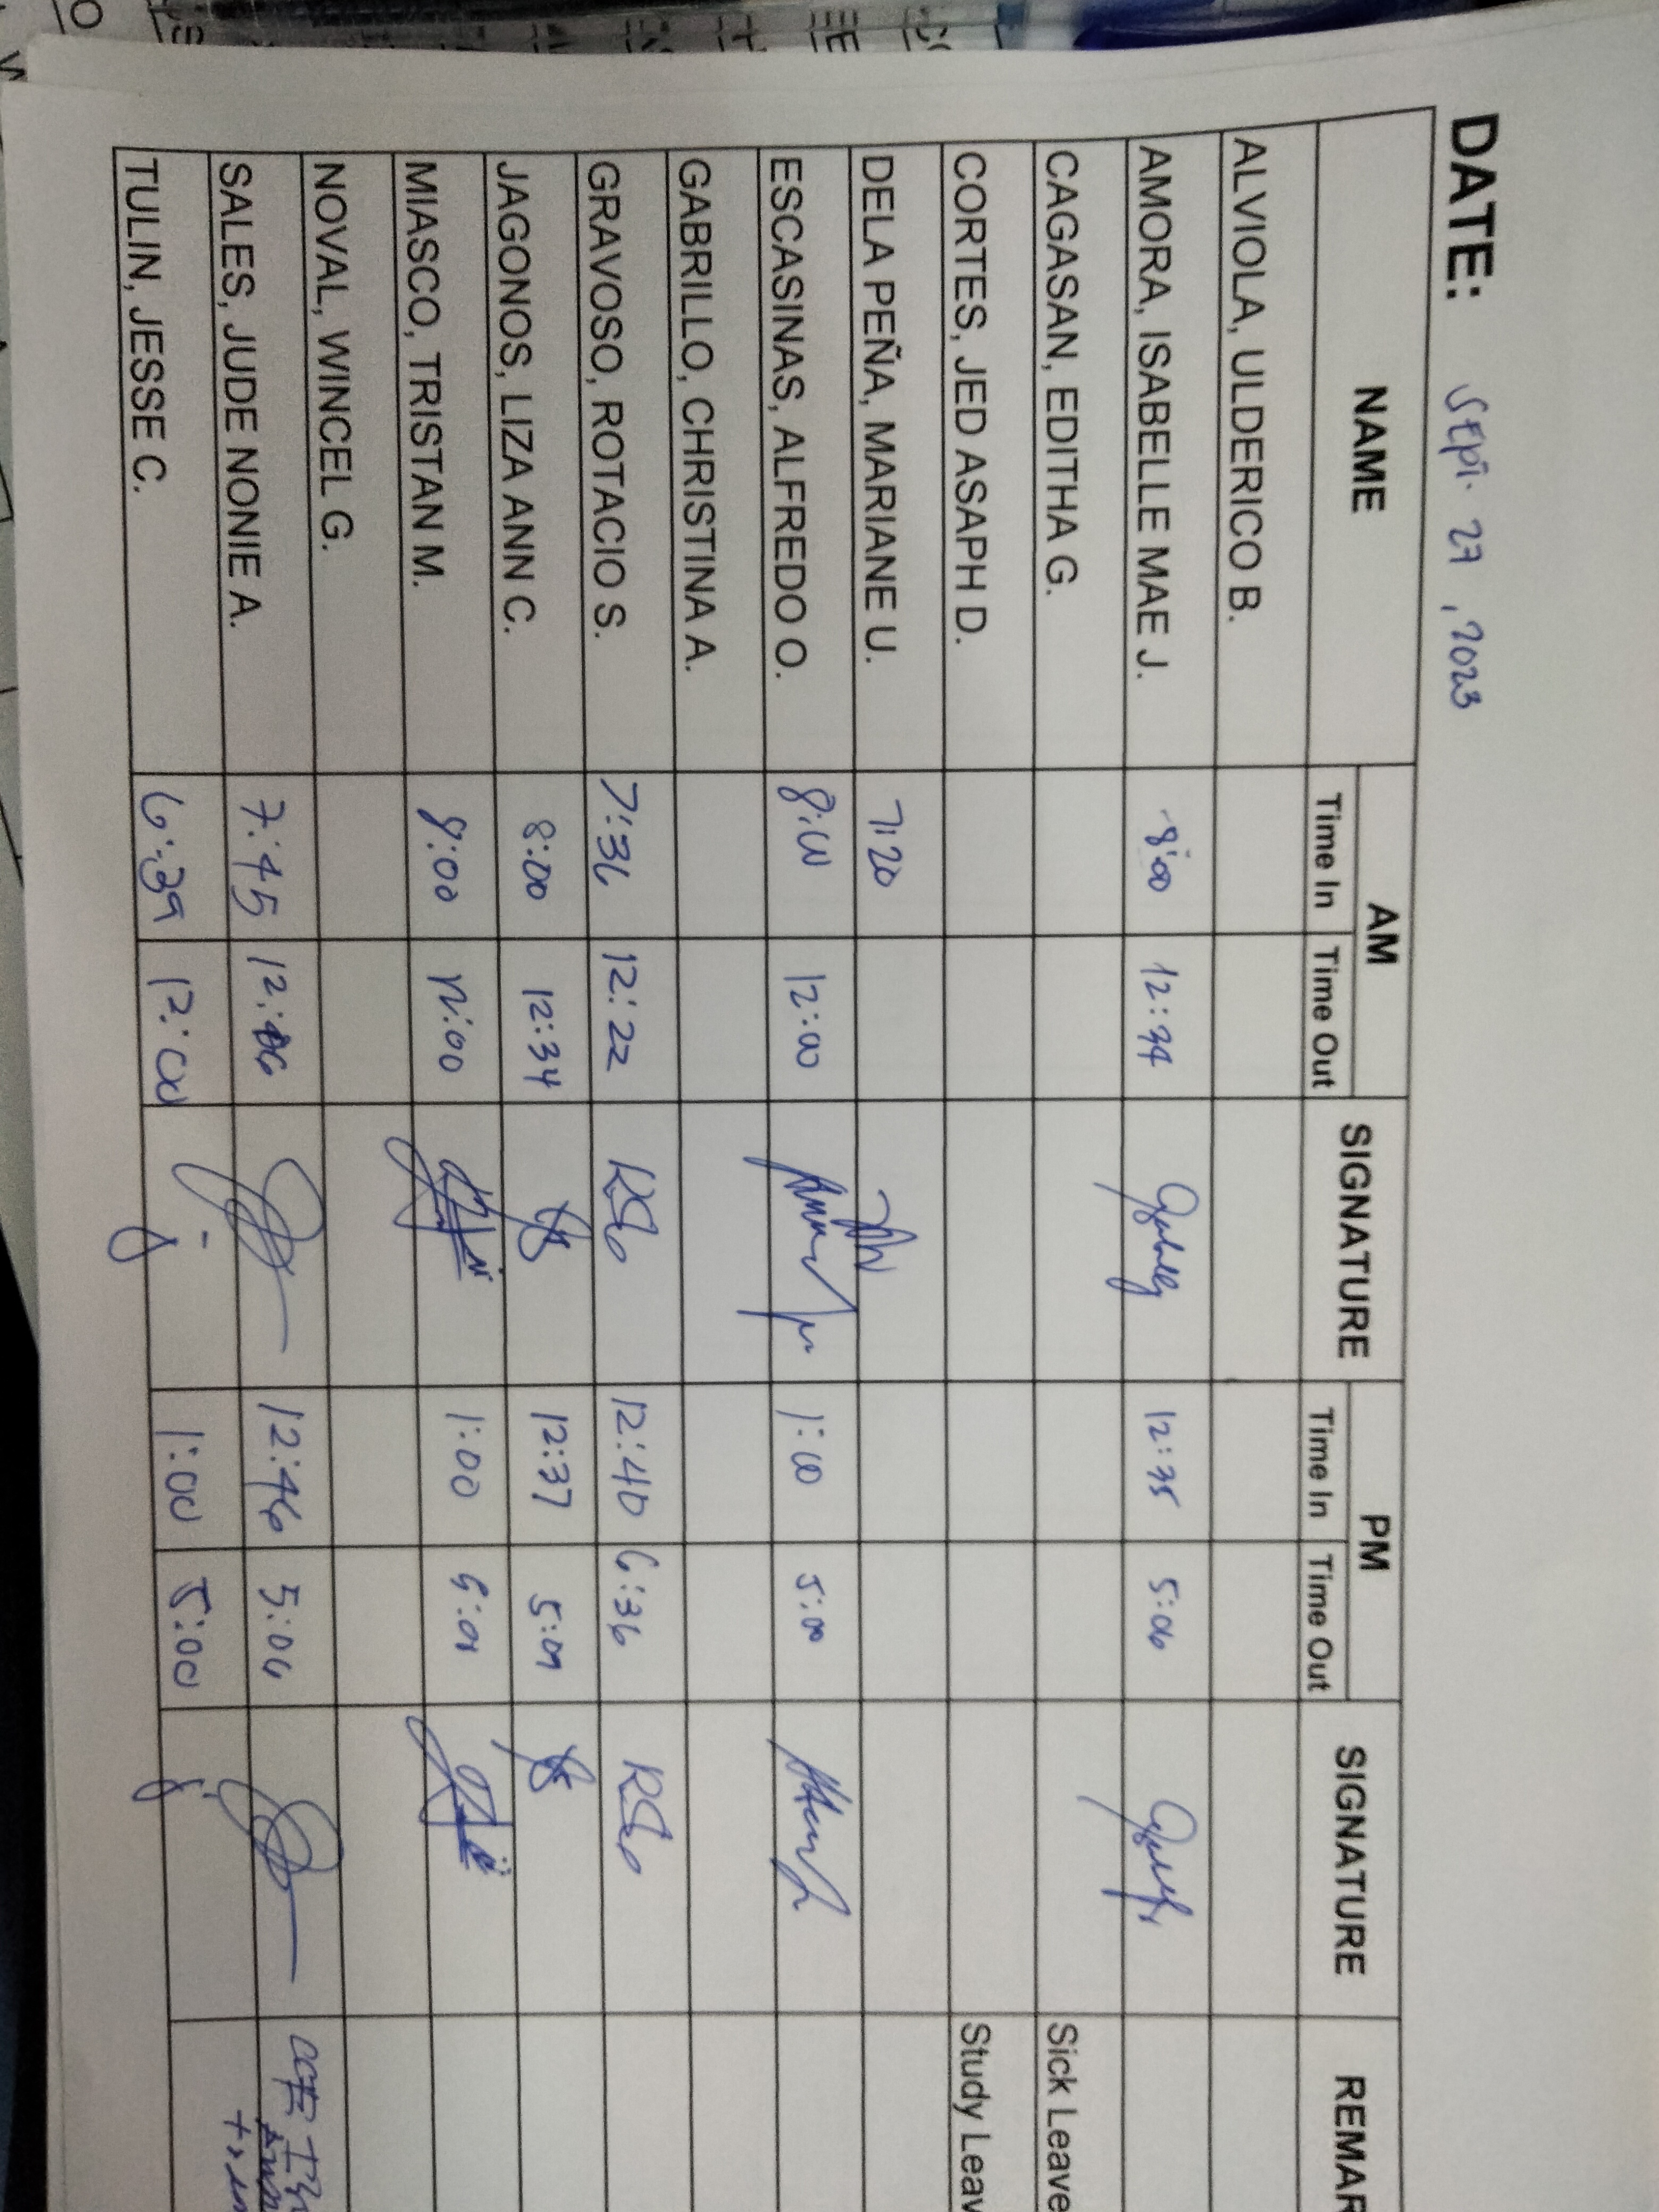 DATE: Sept. 27, 2023
NAME AM SIGNATURE PM SIGNATURE REMAR
Time In Time Out Time In Time Out
ALVIOLA, ULDERICO B.
AMORA, ISABELLE MAE J. 8:00 12:34 12:35 5:06
CAGASAN, EDITHA G. Sick Leave
CORTES, JED ASAPH D. Study Leav
DELA PEÑA, MARIANE U. 7:20
ESCASINAS, ALFREDO O. 8:00 12:00 1:00 5:00
GABRILLO, CHRISTINA A.
GRAVOSO, ROTACIO S. 7:36 12:22 12:40 6:36
JAGONOS, LIZA ANN C. 8:00 12:34 12:37 5:09
MIASCO, TRISTAN M. 8:00 12:00 1:00 5:01
NOVAL, WINCEL G.
SALES, JUDE NONIE A. 7:45 12:06 12:46 5:06
TULIN, JESSE C. 6:39 12:00 1:00 5:00